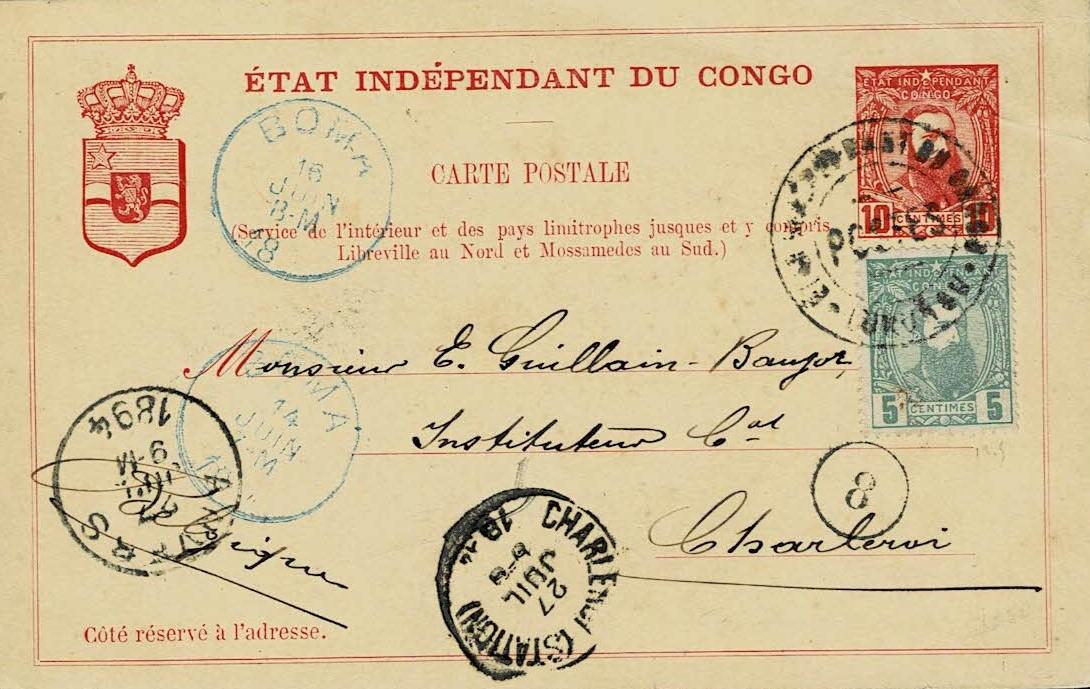 ÉTAT INDÉPENDANT DU CONGO
ÉTAT INDÉPENDANT
CONGO
10 CENTIMES 10
BOMA
16
JUIN
8-M
CARTE POSTALE
(Service de l'intérieur et des pays limitrophes jusques et y compris
Libreville au Nord et Mossamedes au Sud.)
POSTES
ÉTAT INDÉPENDANT
CONGO
5 CENTIMES 5
Monsieur E. Guillain-
BOMA
14
JUIN
Instituteur Cal
Charleroi
8
ANVERS
1894
9-M
Belgique
CHARLEROI (STATION)
8-9
27
JUIL
Côté réservé à l'adresse.